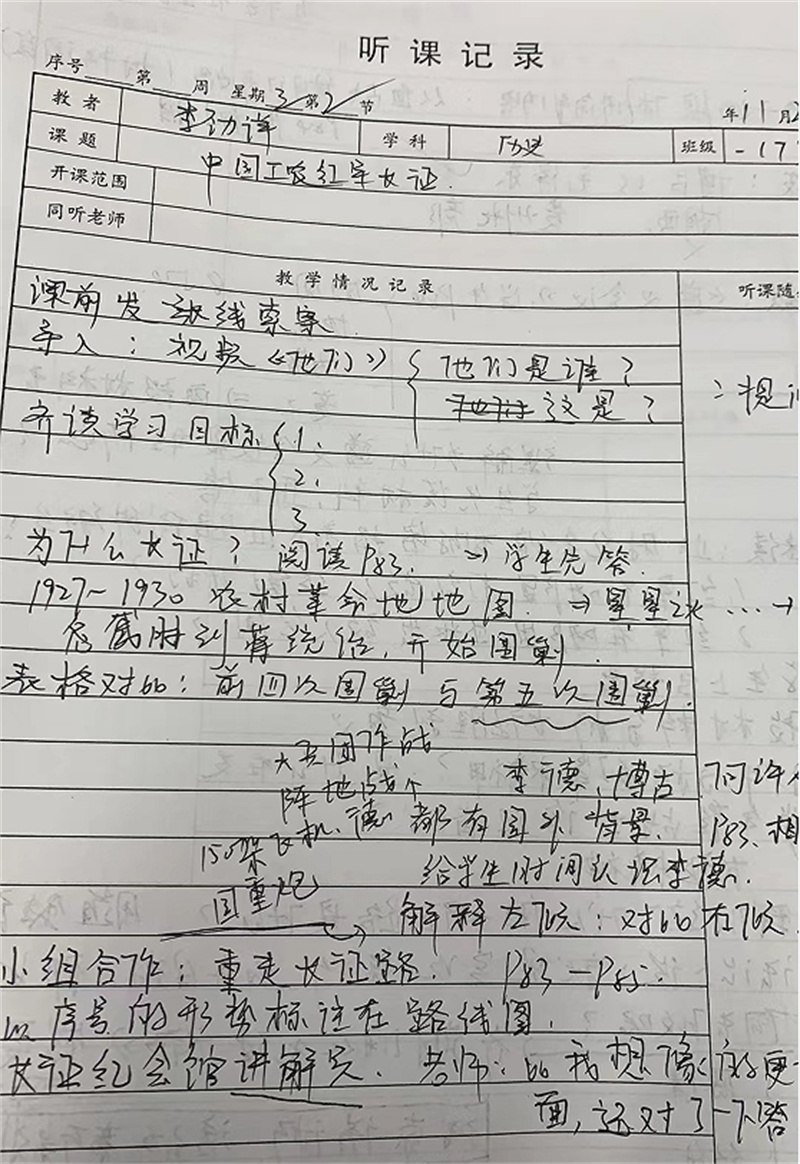 听课记录
序号 第 周 星期 3 第 2 节 年 11 月 2
教者 李劲洋
课题 学科 历史 班级 -17
中国工农红军长征.
开课范围
同听老师
教学情况记录 听课随
课前发放线索
导入：视频《他们》 他们是谁？
这是？ 提
齐读学习目标 1.
2.
3.
为什么长征？阅读P83. ⇒ 学生先答.
1927~1930 农村革命地地图. ⇒ 星星之火 …… →
蒋统治，开始围剿.
表格对比：前四次围剿与第五次围剿.
大兵团作战 李德、博古
阵地战
150架飞机、德 都有国外背景. P83、相
国重炮 给学生时间认识李德.
解释左倾：对比右倾
小组合作：重走长征路. P83-P85.
以序号的形势标注在路线图.
长征纪念馆讲解员. 老师：比我想像的更
面，还对了一下答